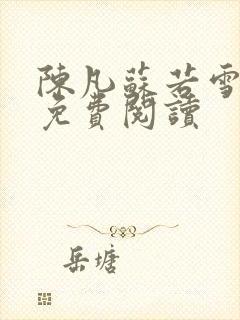 陳凡蘇若雪
免費閱讀
岳塘